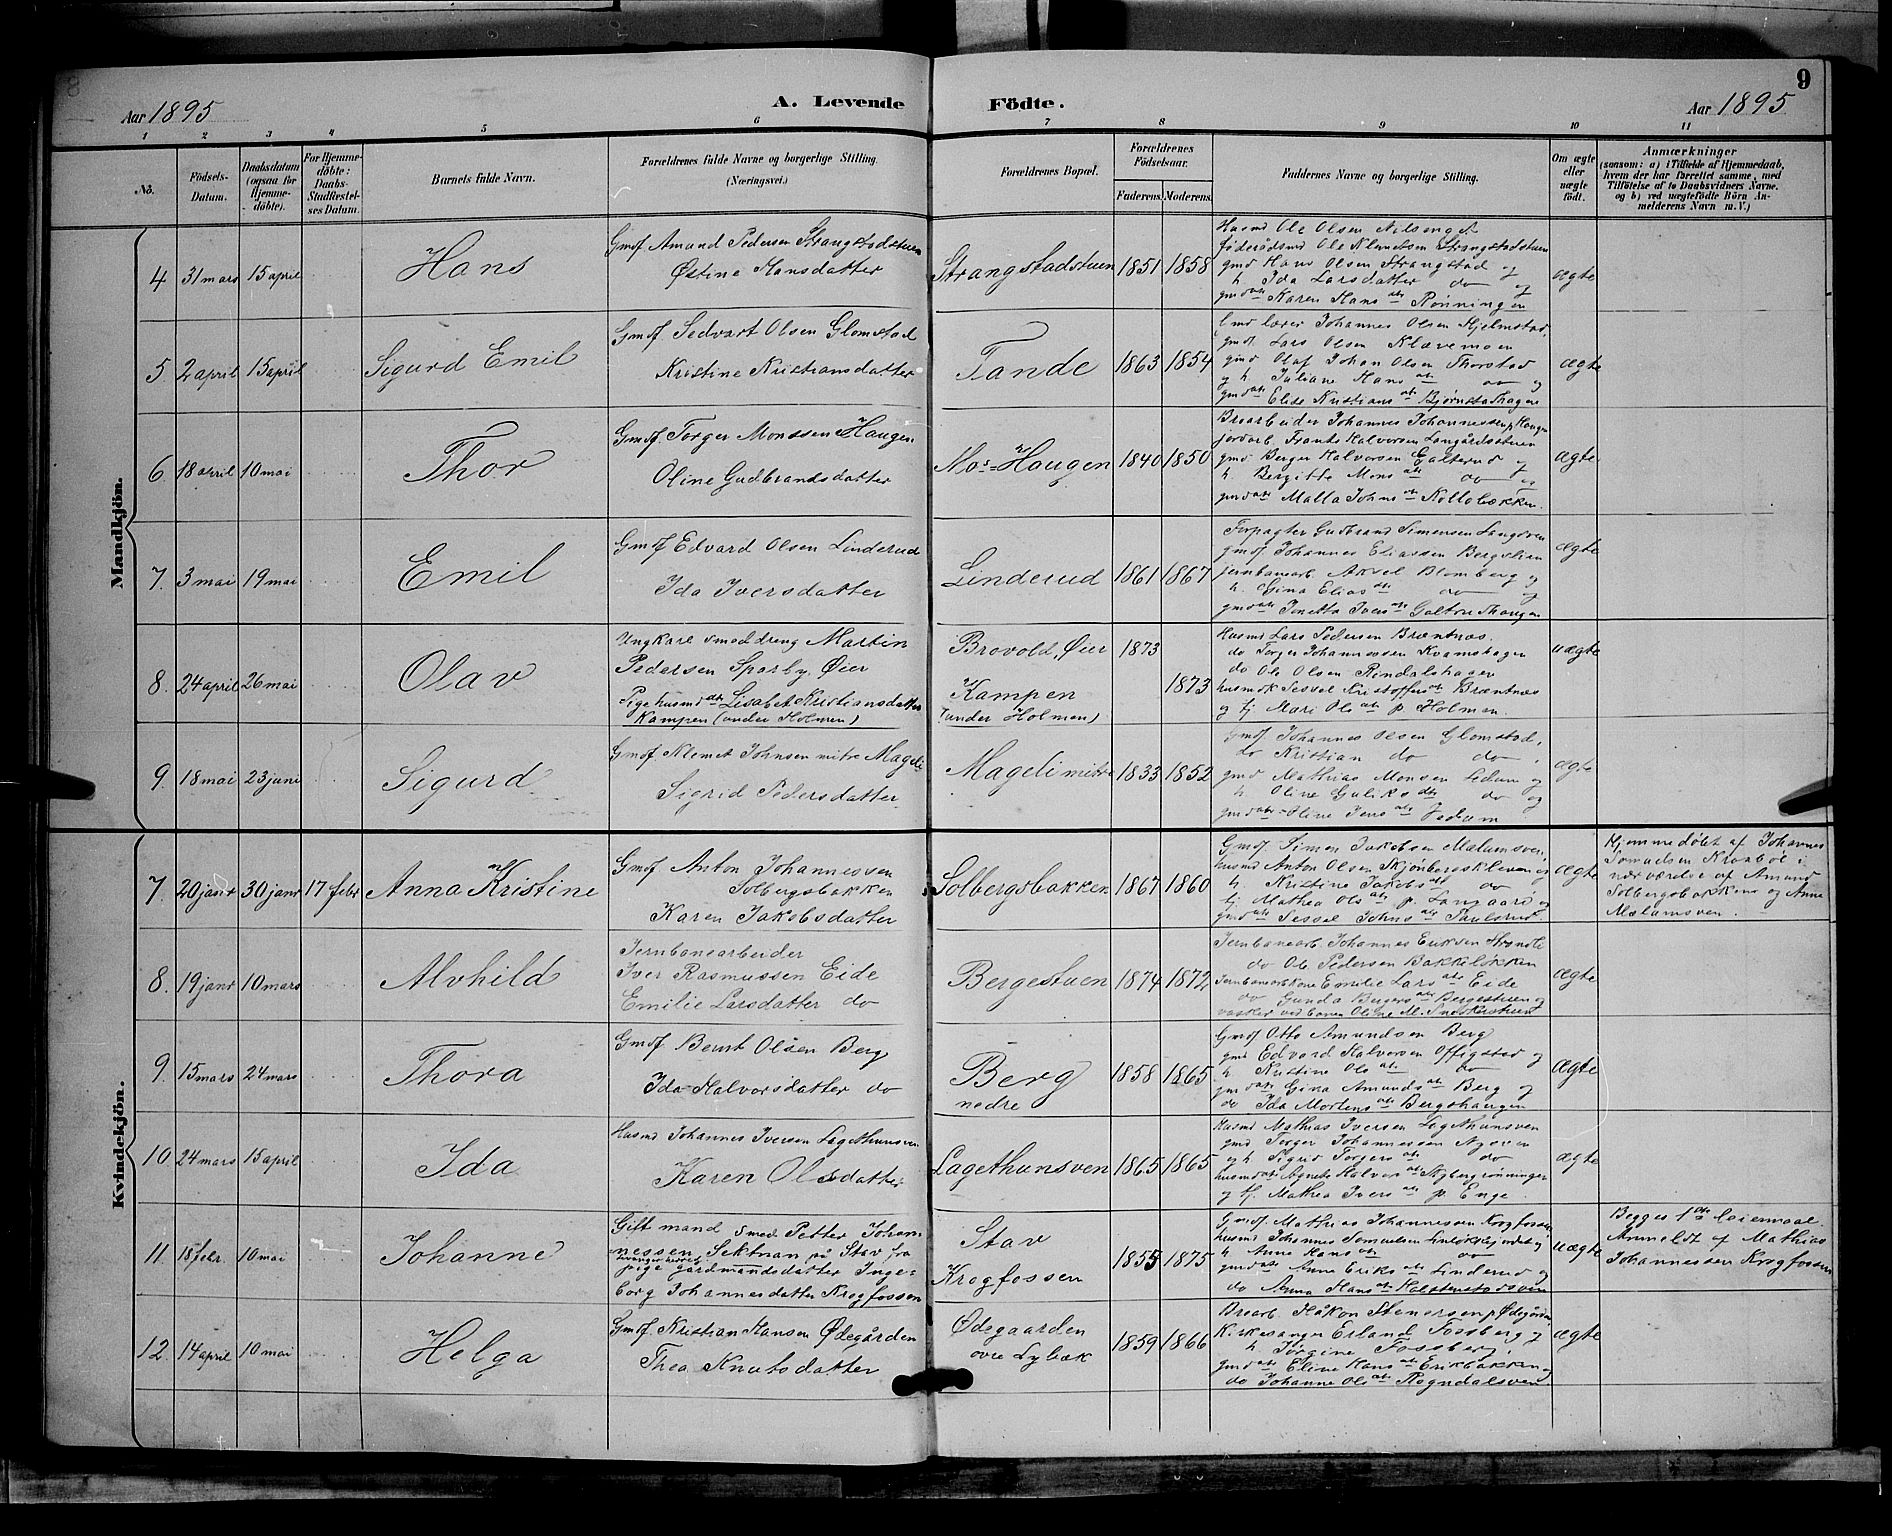 8
9
Aar 1895
A. Levende
Födte.
Aar 1895
1 2 3 4 5 6 7 8 9 10 11
No.
Födsels-Datum.
Daabsdatum (ogsaa for Hjemme-döbte).
For Hjemme-döbte: Daabs-Stadfæstel-ses Datum.
Barnets fulde Navn.
Forældrenes fulde Navne og borgerlige Stilling. (Næringsvei.)
Forældrenes Bopæl.
Forældrenes Födselsaar.
Faderens. Moderens.
Faddernes Navne og borgerlige Stilling.
Om ægte eller uægte födt.
Anmærkninger
(saasom: a) i Tilfælde af Hjemmedaab, hvem der har forrettet samme, med Tilföielse af to Daabsvidners Navne. og b) ved uægtefödte Börn An-melderens Navn m. V.)
Mandkjön.
4 31 mars 15 april Hans
Gmdf. Amund Pedersen Strangstadstuen
Østine Hansdatter
Strangstadstuen 1851 1858
Husmd Ole Olsen Nilsenget
føderådsmd Ole Klundsen Strangstadstuen
gmd Hans Olsen Strangstad og
h. Ida Larsdatter do og
gmdatr Karen Hansdtr Rønningen
ægte
5 2 april 15 april Sigurd Emil
Gmdf. Sedvart Olsen Glomstad
Kristine Kristiansdatter
Tande 1863 1854
lærer Johannes Olsen Hjelmstad,
gmdf. Lars Olsen Klævemoen
gmd Olaf Johan Olsen Thorstad
og h. Juliane Hansdtr do og
gmdatr Elise Kristiansdtr
ægte
6 18 april 10 mai Thor
Gmdf. Torger Monssen Haugen
Oline Gudbrandsdatter
Mos-Haugen 1840 1850
Brearbeider Johannes Johannessen p. Haugen
jordarb. Frants Halvorsen Langårdsstuen
gmd Berger Halvorsen Galterud og
h. Bergitte Monsdtr do og
gmdatr Malla Johnsdtr Kollobækken.
ægte
7. 3 mai 19 mai Emil
Gmdf Edvard Olsen Linderud
Ida Iversdatter
Linderud 1861 1867
Forpagter Gudbrand Simensen Langsven
gmdf. Johannes Eliassen Bergslien
jernbanearb. Aksel Blomberg og
h. Gina Eliasdtr do og
gmdatr Jonetta Iversdtr
ægte
8. 24 april 26 mai Olav
Ungkarl smeddreng Martin
Pedersen Sporby, Øier
Pige husmdatr Lisabet Kristiansdatter
Kampen (under Holmen)
Brovold, Øier 1873
Kampen 1873
(under Holmen)
Husmd Lars Pedersen Bræntnæs.
do Torger Johannessen Kvamshagen
do Ole Olsen Rindalshagen
husmdk Sessel Kristoffersdtr Bræntnæs
og tj. Mari Olsdtr p. Holmen.
uægte
9. 18 mai 23 juni Sigurd
Gmdf. Klemet Johnsen mitre Mageli
Sigrid Pedersdatter
Mageli mitre 1833 1852
Gmdf. Johannes Olsen Glomstad,
do Kristian do do,
gmd Mathias Monsen Sedum og
h. Oline Guliksdtr do og
gmdatr Oline Jensdtr Sedum
ægte
Kvindekjön.
7. 20 janr 30 janr 17 febr Anna Kristine
Gmdf. Anton Johannessen
Solbergsbakken
Karen Jakobsdatter
Solbergsbakken 1867 1860
Gmdf. Simen Jakobsen Mælumsven,
husmd Anton Olsen Skjønbergskleven og
h. Kristine Jakobsdtr do
tj. Mathea Olsdtr p. Langaard og
gmdatr Sessel Johnsdtr Paulsrud.
ægte
Hjemmedøbt af Johannes
Kroabøl i
nærværelse af Amund
Solbergsbakken og Anne
Mælumsven.
8. 19 janr 10 mars Alvhild
Jernbanearbeider
Iver Rasmussen Eide
Emilie Larsdatter do
Bergestuen 1874 1872
Jernbanearb. Johannes Eriksen Strandli
do Ole Pedersen Bakkeløkken
Jernbanearbkone Emilie Larsdtr Eide
do Gunda Bergersdtr Bergestuen og
vasker ved banen Oline M. Snekkerstuen
ægte
9. 15 mars 24 mars Thora
Gmdf. Bernt Olsen Berg
Ida Halvorsdatter do
Berg nedre 1858 1865
Gmdf Otto Amundsen Berg
gmd Edvard Halvorsen Offigstad og
h. Kristine Olsdtr do
gmdatr Gina Amundsdtr Berg og
do Ida Mortensdtr Bergshaugen
ægte
10. 24 mars 15 april Ida
Husmd Johannes Iversen Lagethunsven
Karen Olsdatter
Lagethunsven 1865 1865
Husmd Mathias Iversen Lagethunsven
gmd Torger Johannessen Nysven
og h. Sigrid Torgersdtr do
husmdatr Agnethe Halvorsdtr Nybergrønningen
og tj. Mathea Iversdtr p. Enge.
ægte
11. 18 febr. 10 mai Johanne
Gift mand smed Petter Johan-
nessen Sektnan på Stav fra
pige gårdmandsdatter Inge-
borg Johannesdatter Krogfossen
Stav
Krogfossen
1855 1875
Gmdf. Mathias Johannessen Krogfossen,
husmd Johannes
h. Anne Hansdtr do
gmdatr Anne Eriksdtr Linderud og
do Anna Hansdtr
uægte
Begges 1ste leiermaal.
Anmeldt af Mathias
Johannessen Krogfossen
12. 14 april 10 mai Helga
Gmdf. Kristian Hansen Ødegården
Thea Knutsdatter
Ødegaarden
øvre Lybæk
1859 1866
Brearb. Håkon Stenersen p. Ødegården
Kirkesanger Erland Fossberg og
h. Jørgine Fossberg,
gmdatr Eline Hansdtr Erikbakken og
do Johanne Olsdtr Rogndalsven
ægte